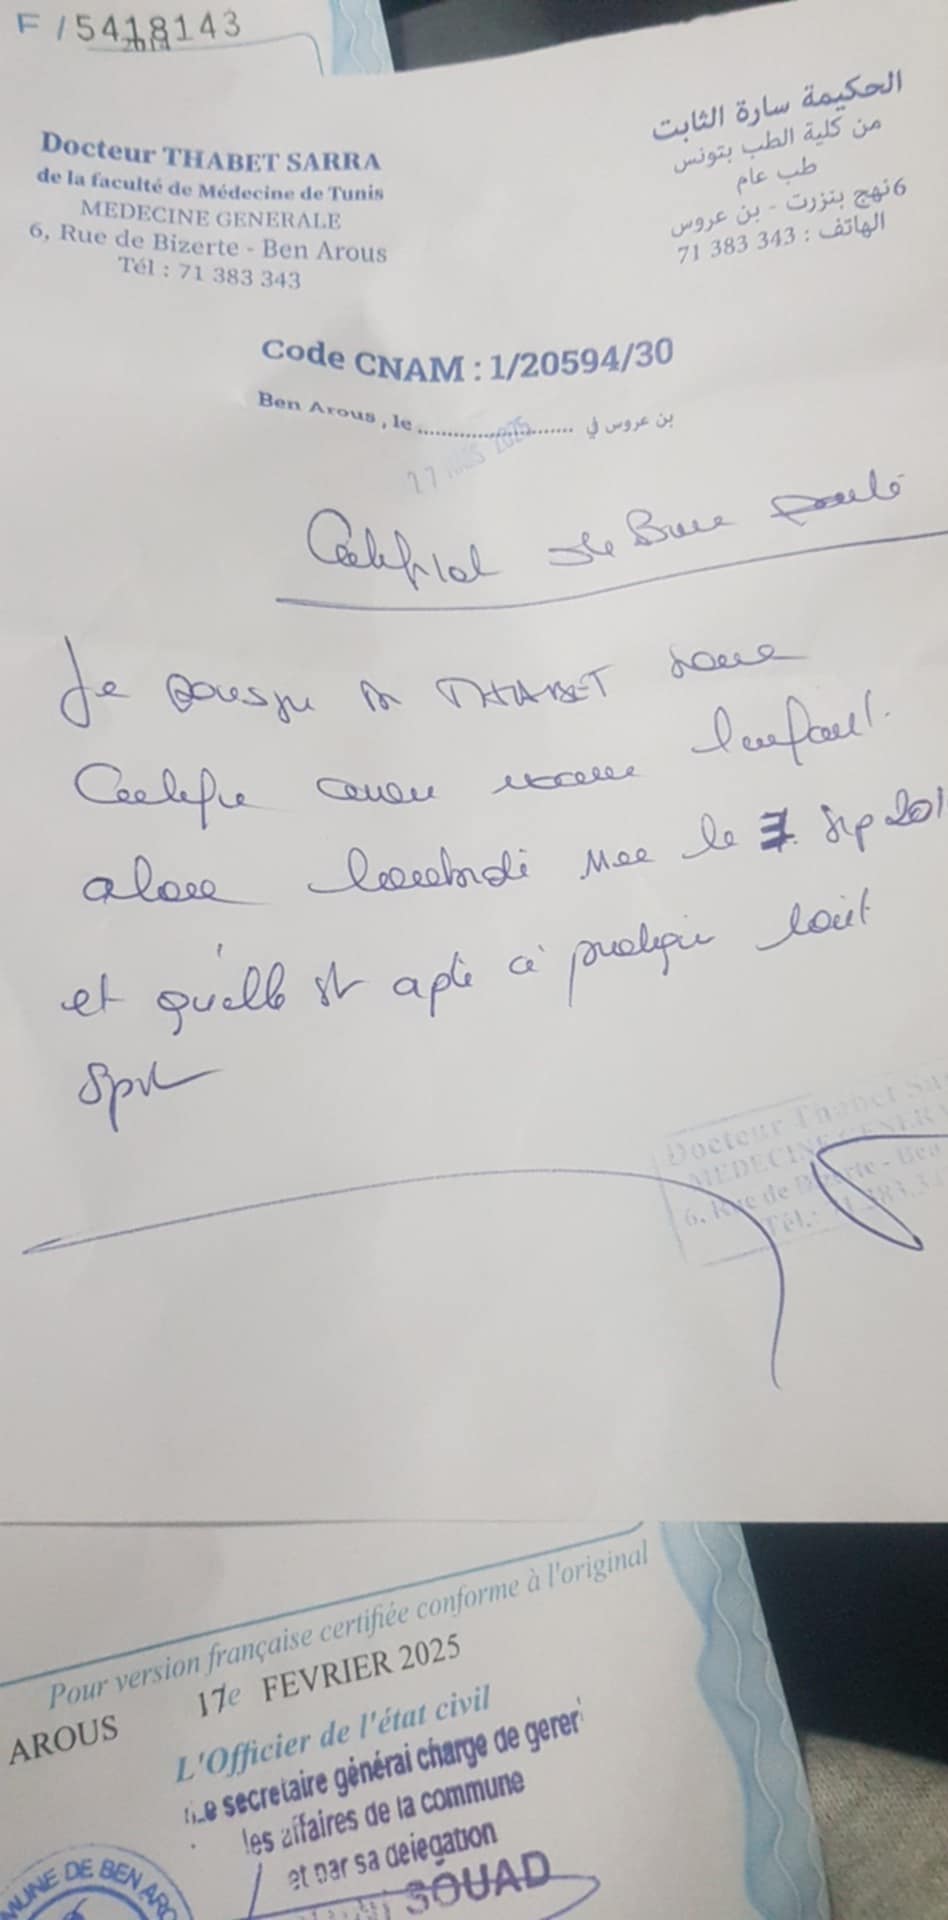 F / 5418143
Docteur THABET SARRA
de la faculté de Médecine de Tunis
MEDECINE GENERALE
6, Rue de Bizerte - Ben Arous
Tél : 71 383 343
الحكيمة سارة الثابت
من كلية الطب بتونس
طب عام
6 نهج بنزرت - بن عروس
الهاتف : 343 383 71
Code CNAM : 1/20594/30
Ben Arous , le .......................... بن عروس في
MARS 2025
Certificat de Bonne santé
Je soussigné Dr THABET Sarra
Certifie avoir examiné l'enfant
née le 7 Sep 201
et qu'elle est apte à pratiquer tout
Sport
Docteur Thabet Sa
MEDECINE GENER
6, Rue de Bizerte - Ben
Tél.:
Pour version française certifiée conforme à l'original
AROUS 17e FEVRIER 2025
L'Officier de l'état civil
Le secretaire général charge de gerer
les affaires de la commune
et par sa delegation
SOUAD
MUNE DE BEN ARO